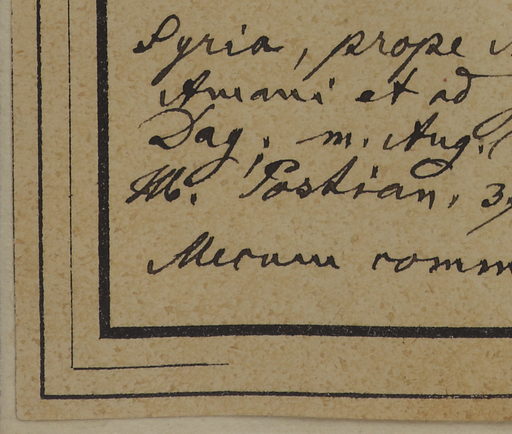 Syria, prope
Amani et ad
Dag, m. Aug.
M. Postian. 3
Mecum comm